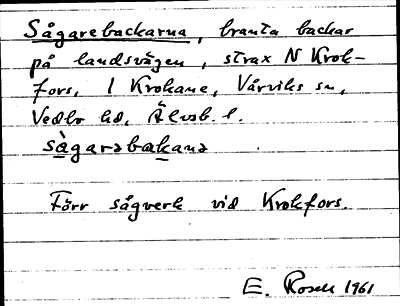 Sågarebackarna, branta backar
på landsvägen, strax N Krok-
fors, i Krokane, Vårviks sn,
Vedbo hd, Älvsb. l.
sågarəbakana
Förr sågverk vid Krokfors.
E. Rosell 1961